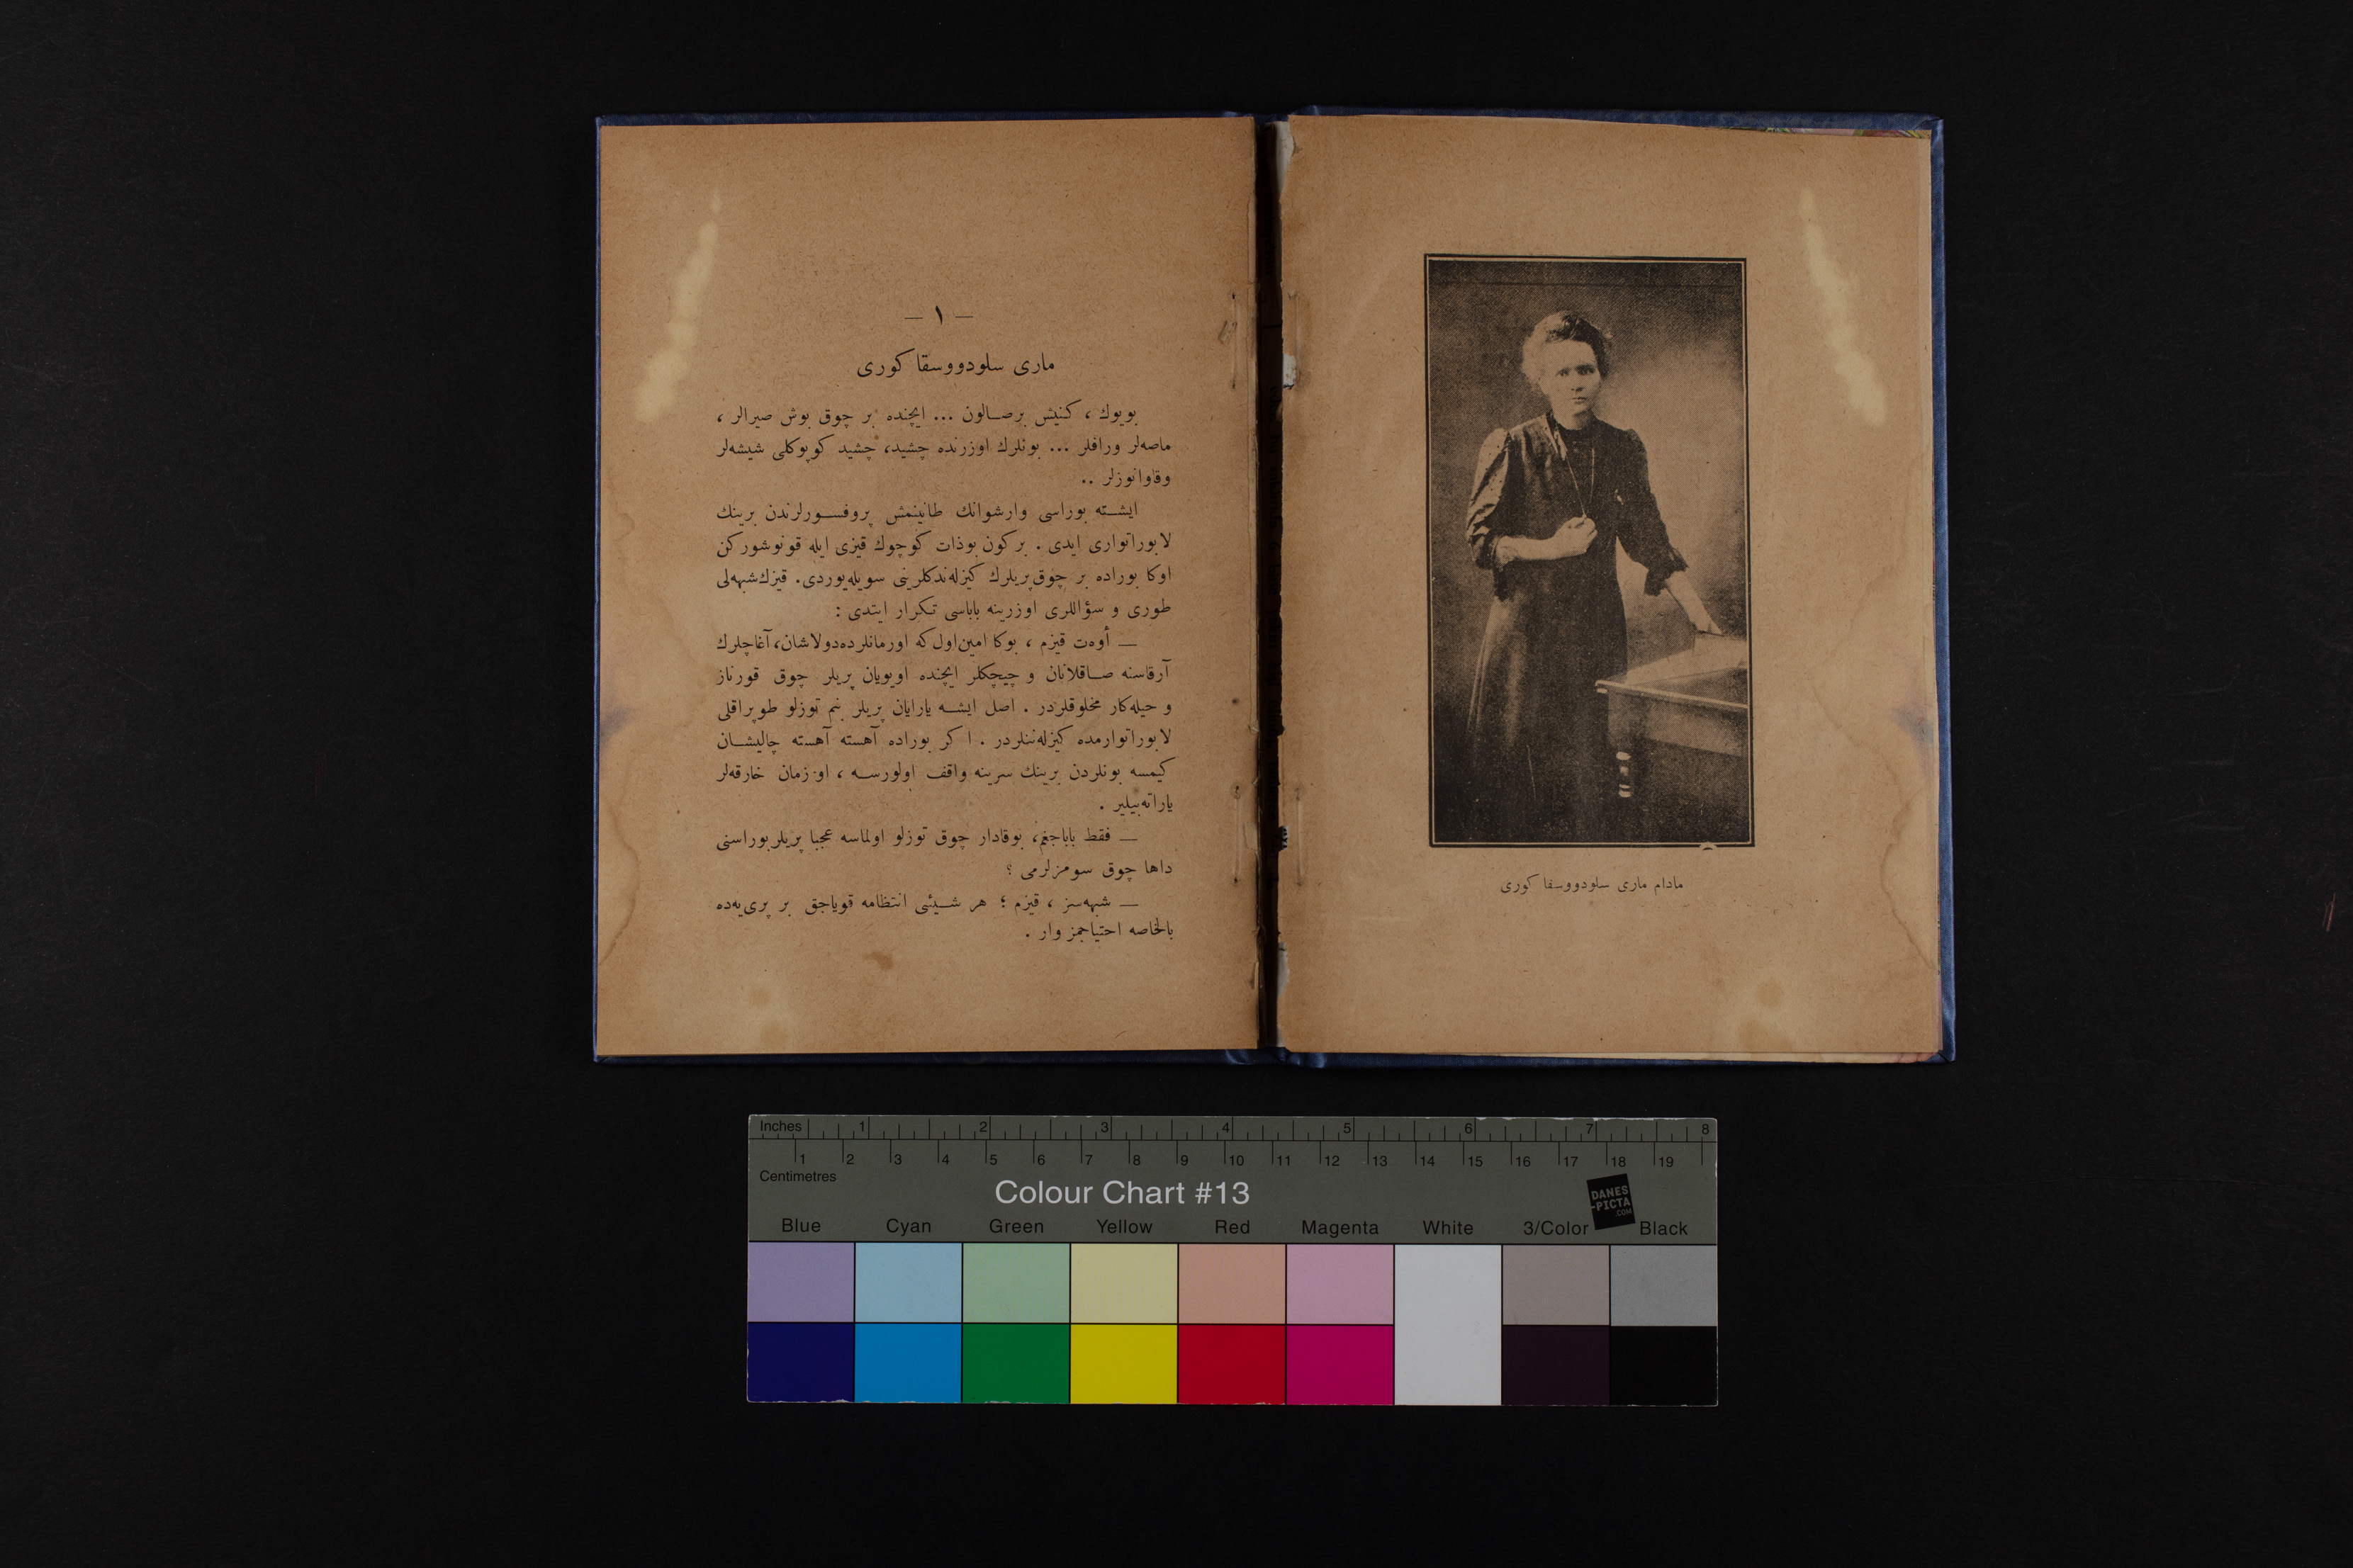 مادام ماری سلودووسقا کوری
— ١ —
ماری سلودووسقا کوری
بویوك ، کنیش برصالون ... ایچنده بر چوق بوش صیرالر ،
ماصه‌لر ورافلر ... بونلرك اوزرنده چشید، چشید کوپوکلی شیشه‌لر
وقاوانوزلر ..
ایشته بوراسی وارشوانك طانینمش پروفسورلرندن برینك
لابوراتواری ایدی . برکون بوذات کوچوك قیزی ایله قونوشورکن
اوکا بوراده بر چوق پریلرك کیزله‌ندکلرینی سویله‌یوردی. قیزك شبهه‌لی
طوری و سؤاللری اوزرینه باباسی تکرار ایتدی :
— أوه‌ت قیزم ، بوکا امین اول که اورمانلرده دولاشان، آغاچلرك
آرقاسنه صاقلانان و چیچکلر ایچنده اویویان پریلر چوق قورناز
و حیله‌کار مخلوقلردر . اصل ایشه یارایان پریلر بنم توزلو طوپراقلی
لابوراتوارمده کیزله‌ننلردر . اکر بوراده آهسته آهسته چالیشان
کیمسه بونلردن برینك سرینه واقف اولورسه ، او زمان خارقه‌لر
یاراته‌بیلیر .
— فقط باباجغم، بوقادار چوق توزلو اولماسه عجبا پریلر بوراسنی
داها چوق سومزلرمی ؟
— شبهه‌سز ، قیزم ؛ هر شیئی انتظامه قویاجق بر پری‌یه‌ده
بالخاصه احتیاجمز وار .
Inches 1 2 3 4 5 6 7 8
1 2 3 4 5 6 7 8 9 10 11 12 13 14 15 16 17 18 19
Centimetres
Colour Chart #13
DANES
-PICTA
.COM
Blue Cyan Green Yellow Red Magenta White 3/Color Black